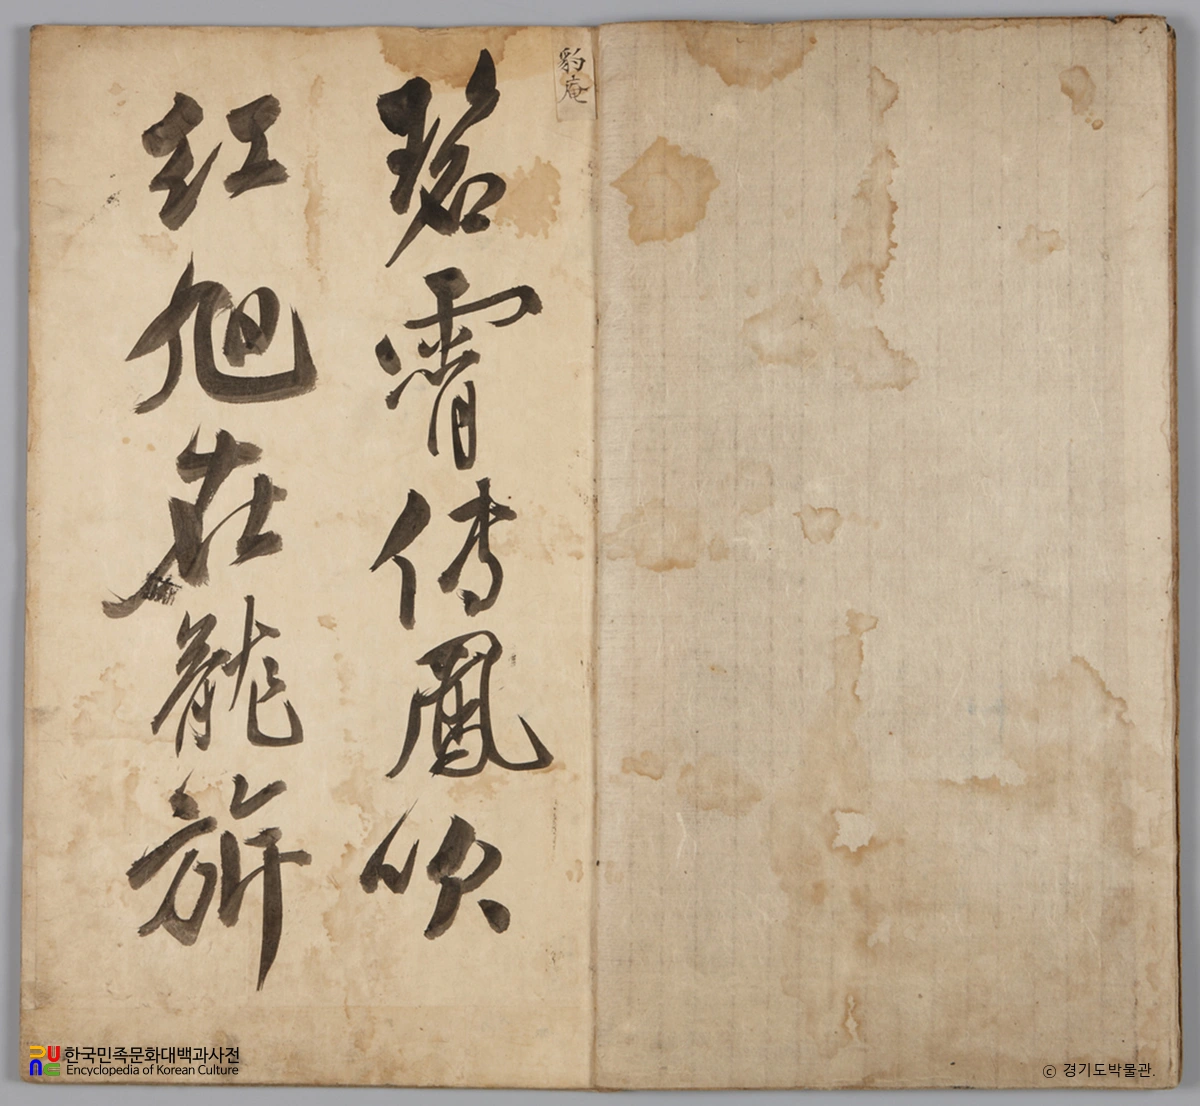 豹庵
碧霄傳鳳吹
紅旭在龍旂
한국민족문화대백과사전
Encyclopedia of Korean Culture
ⓒ 경기도박물관.